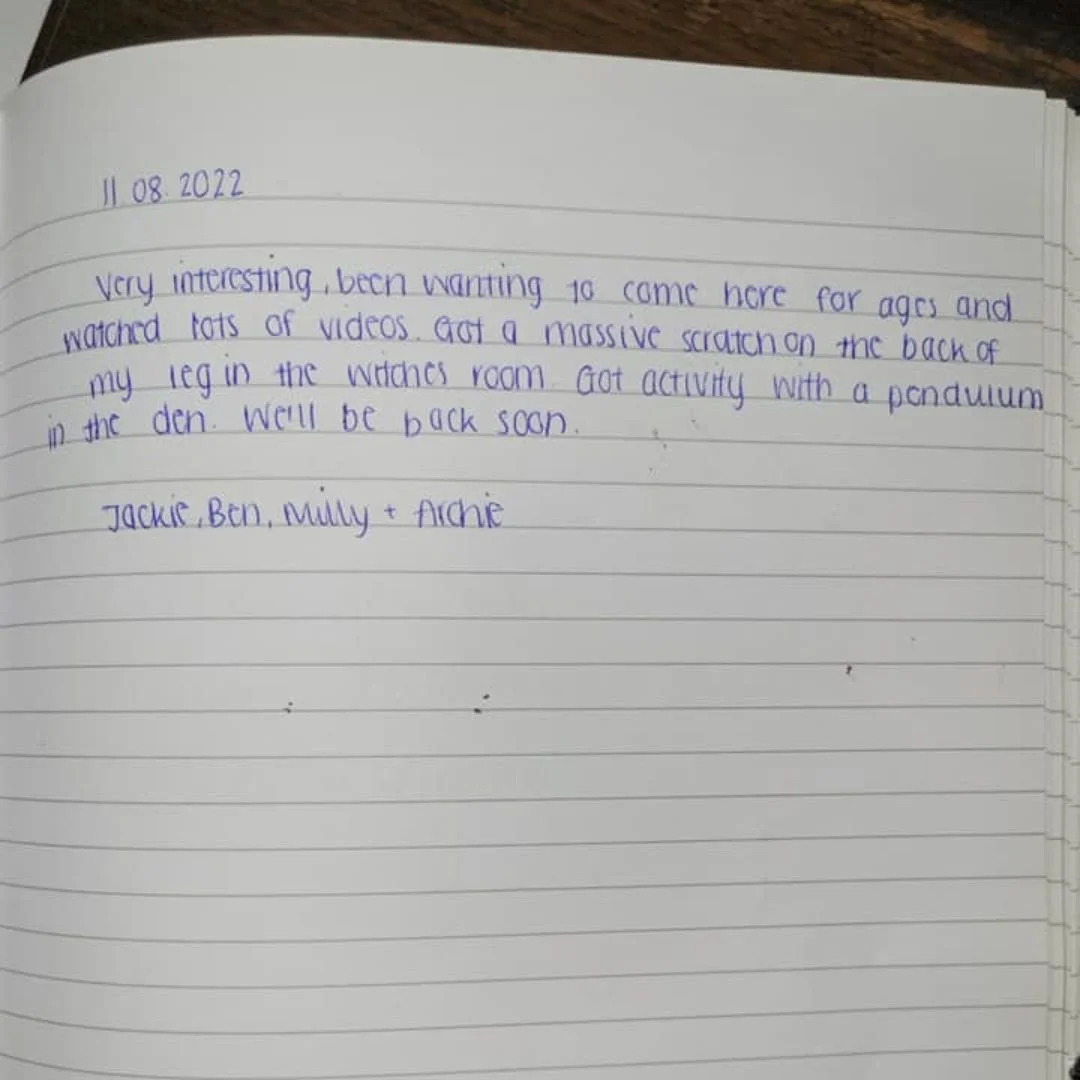 11 08. 2022
Very interesting, been wanting to come here for ages and
watched lots of videos. Got a massive scratch on the back of
my leg in the witches room. Got activity with a pendulum
in the den. We'll be back soon.
Jackie, Ben, Milly + Archie